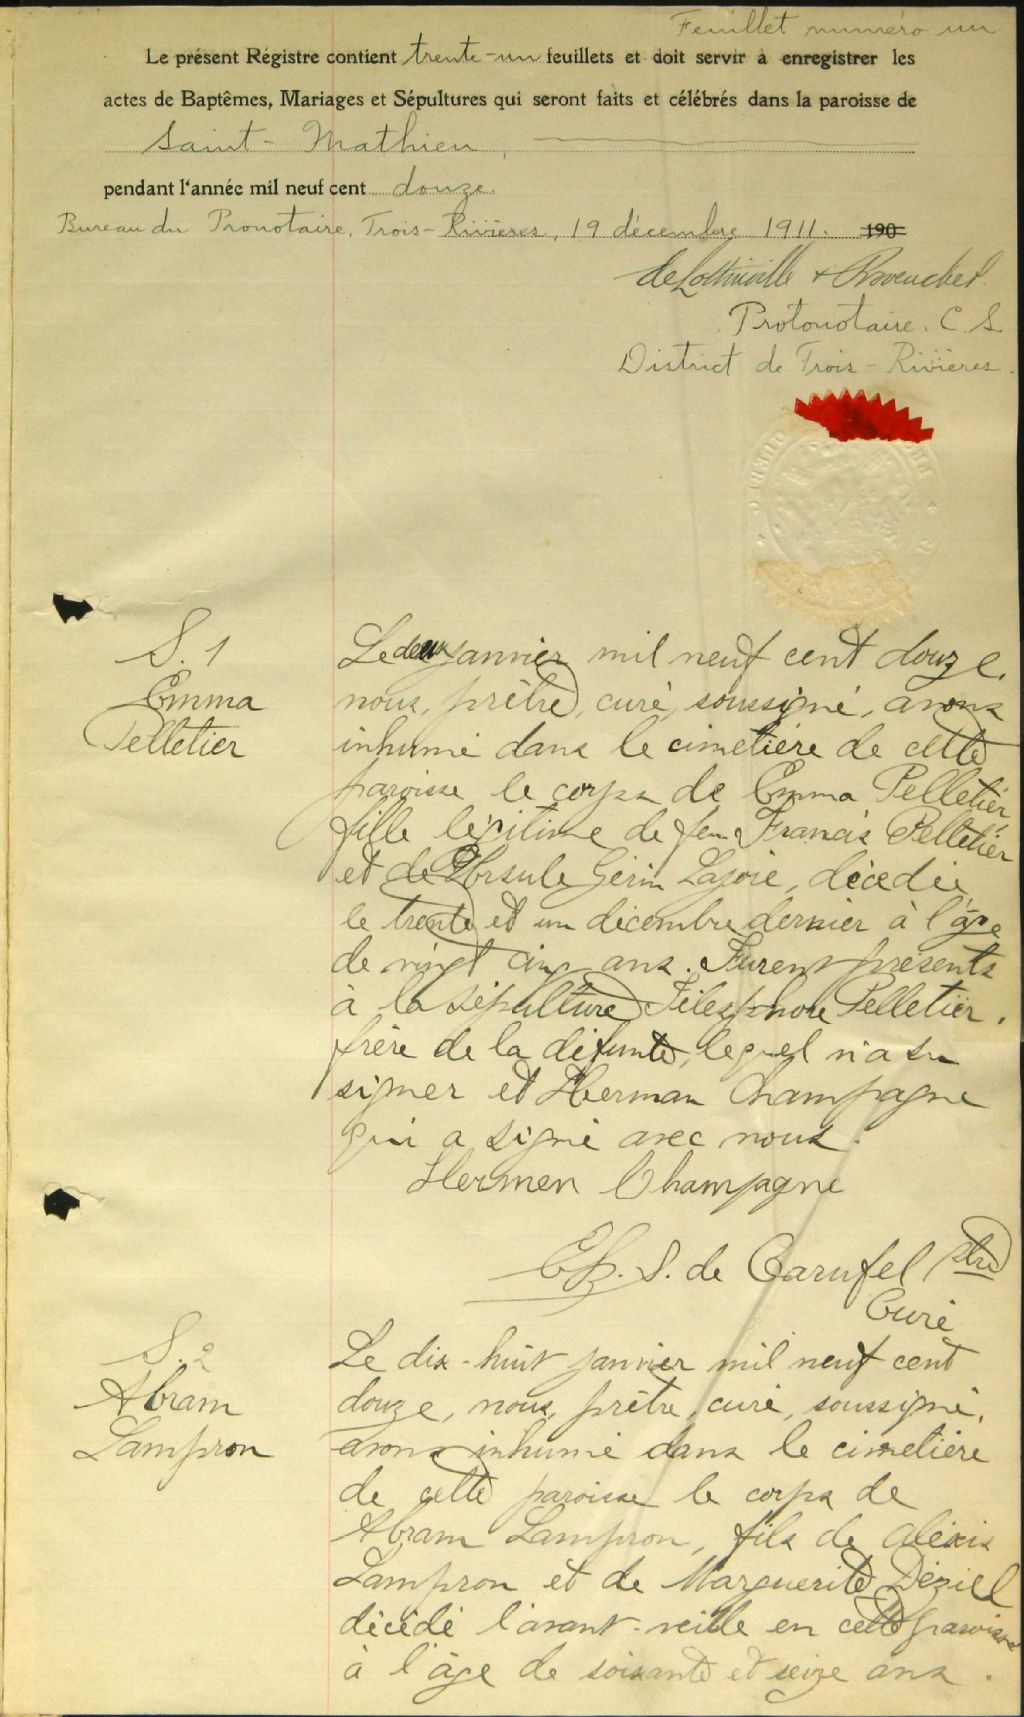 Feuillet numéro un
Le présent Régistre contient trente-un feuillets et doit servir à enregistrer les
actes de Baptêmes, Mariages et Sépultures qui seront faits et célébrés dans la paroisse de
Saint-Mathieu,
pendant l'année mil neuf cent douze.
Bureau du Pronotaire, Trois-Rivières, 19 décembre 1911. 190
deLottinville &
Protonotaire. C. S.
District de Trois-Rivières.
S. 1
Emma
Pelletier
Le deux janvier mil neuf cent douze,
nous, prêtre, curé, soussigné, avons
inhumé dans le cimetière de cette
paroisse le corps de Emma Pelletier,
fille légitime de feu Francis Pelletier
et de Ursule Gérin Lajoie, décédée
le trente et un décembre dernier à l'âge
de vingt cinq ans. Furent présents
à la sépulture Télesphore Pelletier,
frère de la défunte, lequel n'a su
signer et Herman Champagne
qui a signé avec nous.
Hermen Champagne
S. de Carufel ptre
Curé
S. 2
Abram
Lampron
Le dix-huit janvier mil neuf cent
douze, nous, prêtre, curé, soussigné,
avons inhumé dans le cimetière
de cette paroisse le corps de
Abram Lampron, fils de Alexis
Lampron et de Marguerite Déziel
décédé l'avant-veille en cette paroisse
à l'âge de soixante et seize ans.